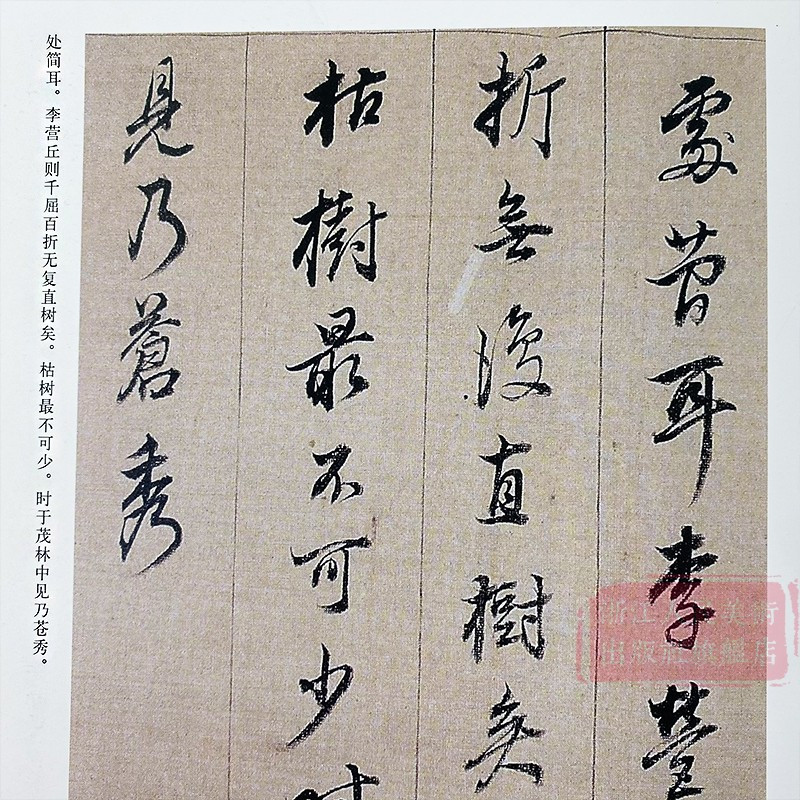 處簡耳李營
折無復直樹矣
枯樹最不可少時
見乃蒼秀
处简耳。李营丘则千屈百折无复直树矣。枯树最不可少。时于茂林中见乃苍秀。
浙江人民美術
出版社旗艦店